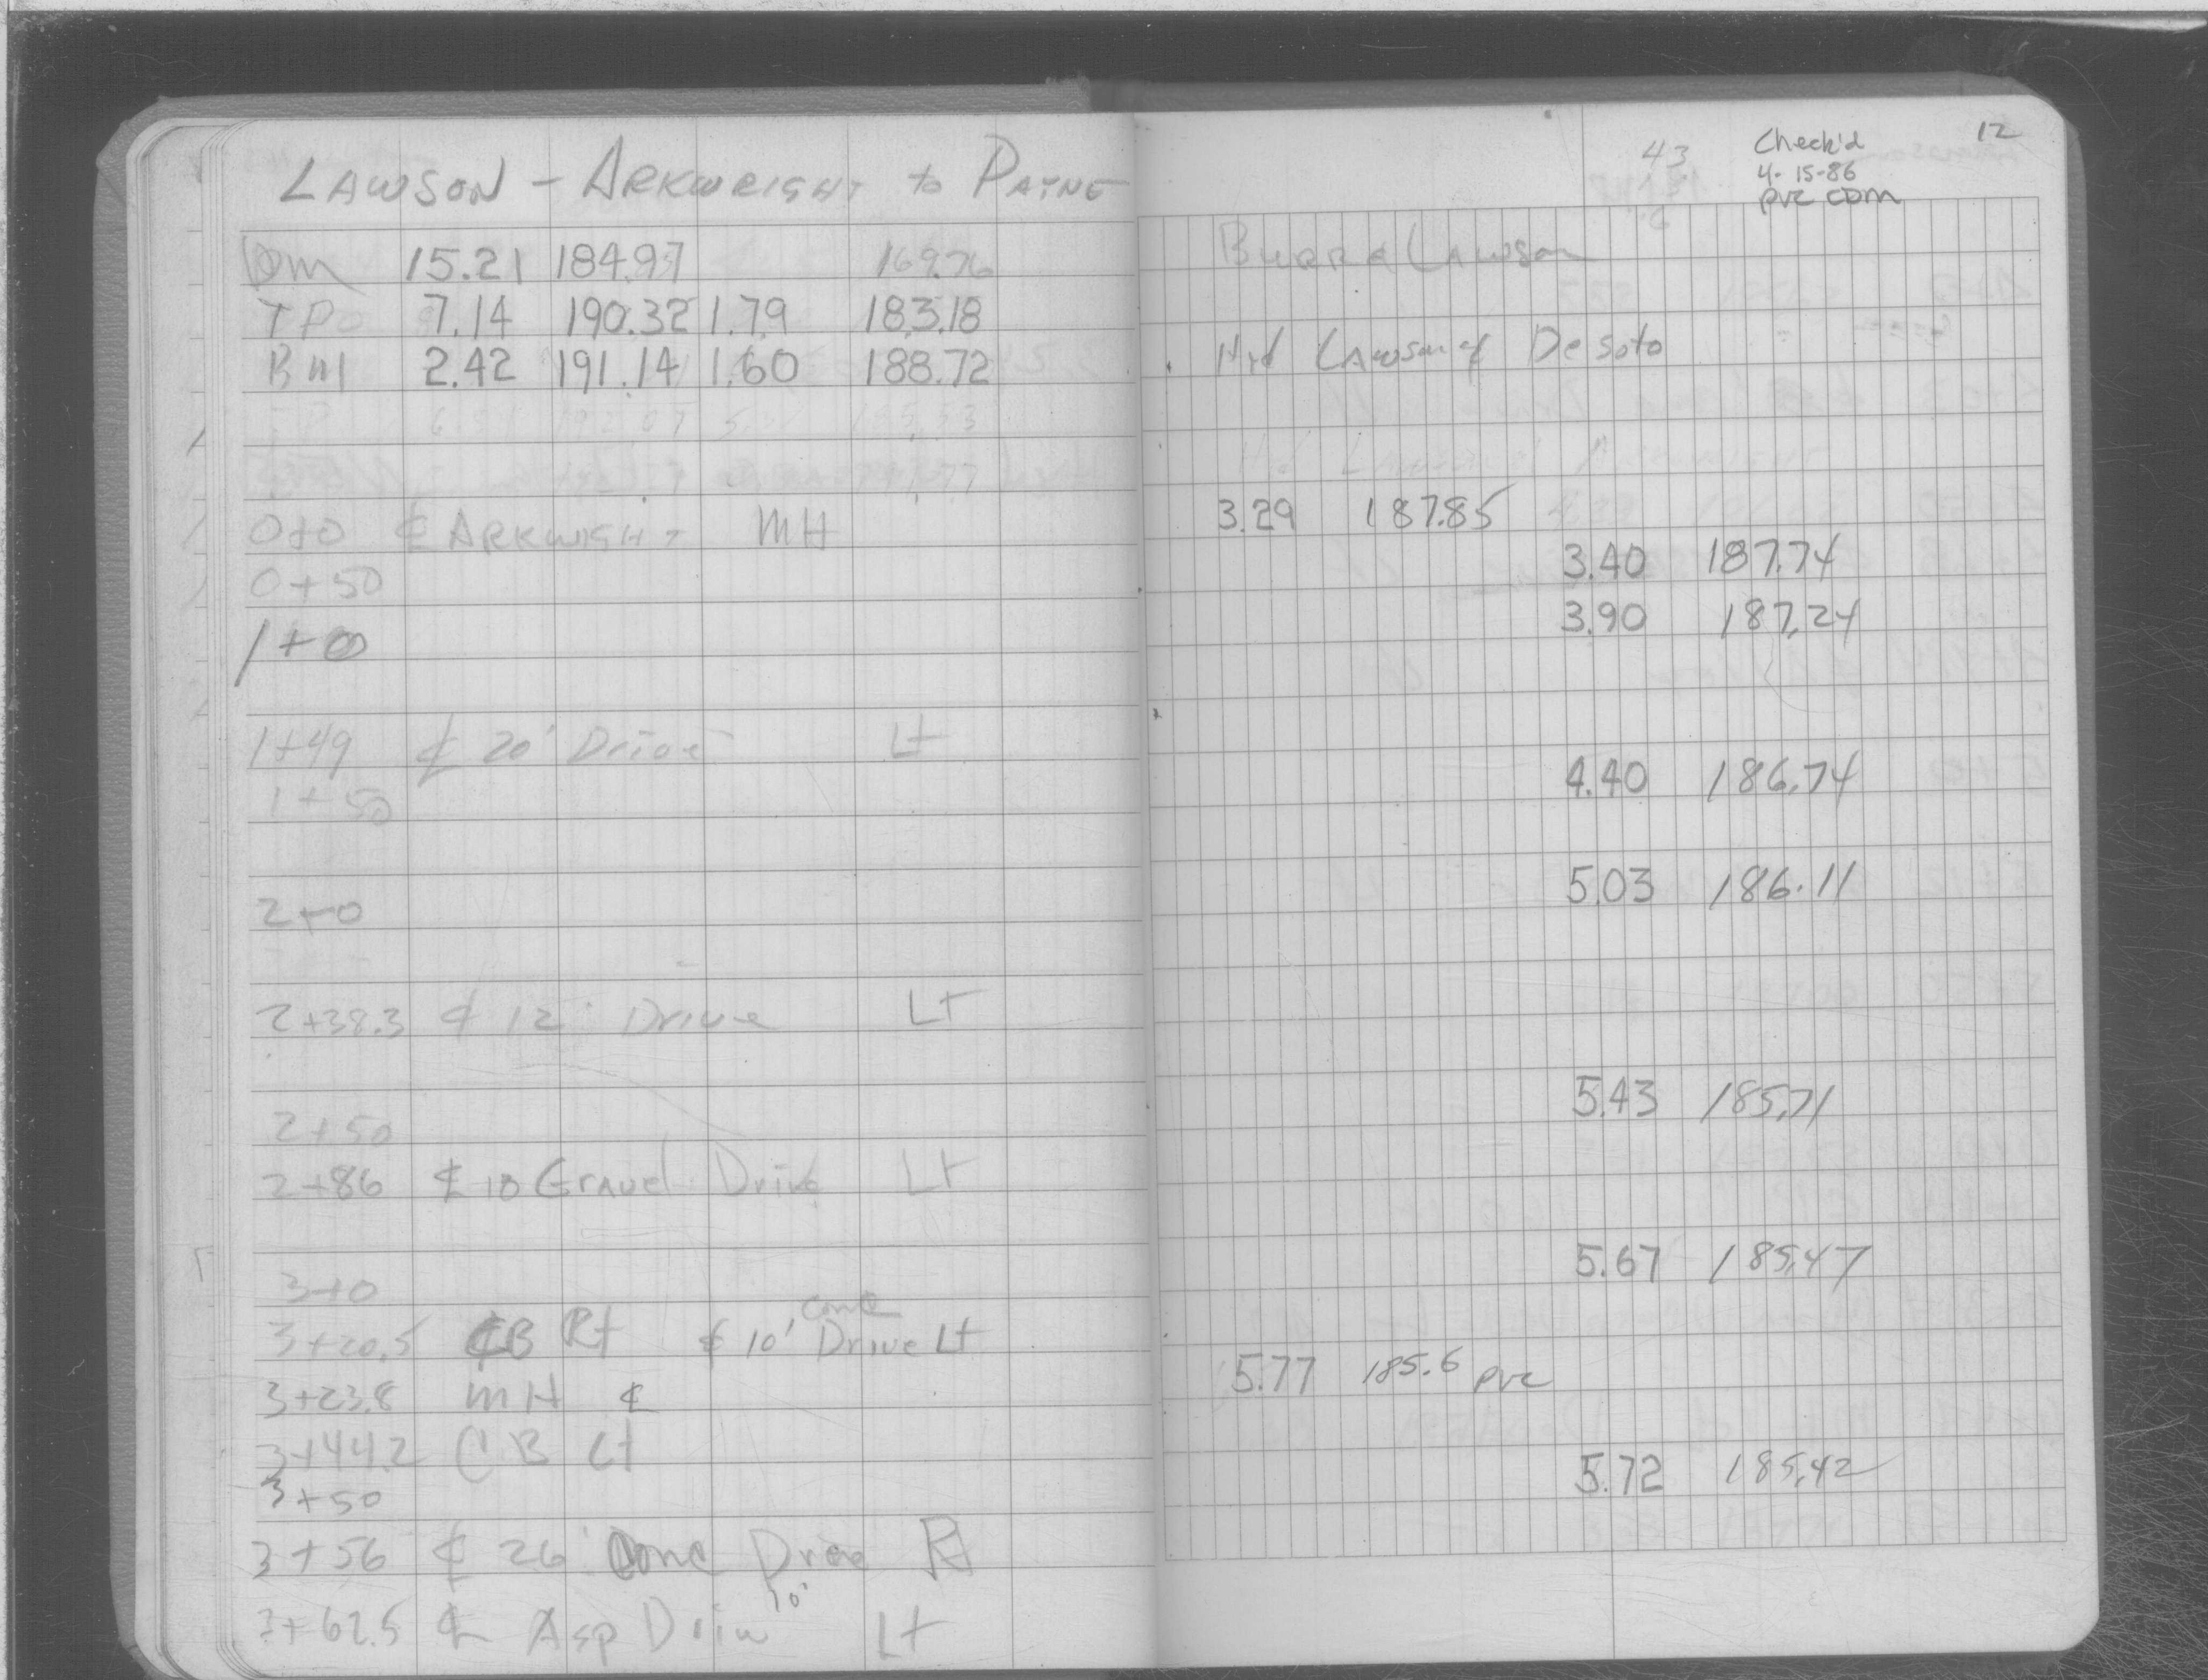 12
Check'd
4-15-86
pvc CDM
43
LAWSON - ARKWRIGHT to PAYNE
Bm 15.21 184.97 169.76 Burr & Lawson
TP 7.14 190.32 1.79 183.18
Bm1 2.42 191.14 1.60 188.72 Hyd Lawson & Desoto
TP 192.07
Hyd Lawson & Arkwright
0+0 ℄ ARKWIGHT MH 3.29 187.85
0+50 3.40 187.74
1+00 3.90 187.24
1+49 ℄ 20' Drive Lt
1+50 4.40 186.74
2+0 5.03 186.11
2+38.3 ℄ 12' Drive Lt
2+50 5.43 185.71
2+86 ℄ 10 Gravel Drive Lt
3+0 5.67 185.47
3+20.5 CB Rt ℄ 10' conc Drive Lt
3+23.8 MH ℄ 5.77 185.6 pvc
3+44.2 CB Lt
3+50 5.72 185.42
3+56 ℄ 26' Conc Drive Rt
3+62.5 ℄ Asp Driv 10' Lt